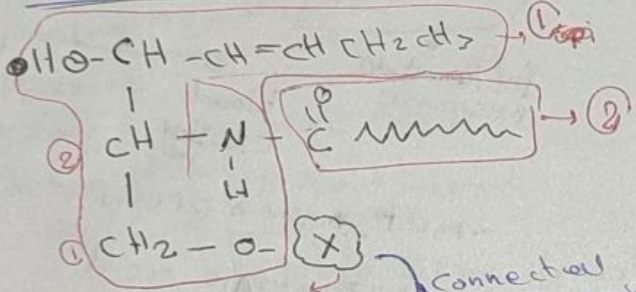 HO-CH-CH=CH CH2 CH3 → ①
O
② CH - N - C → ②
H
① CH2 - O- X
Connection